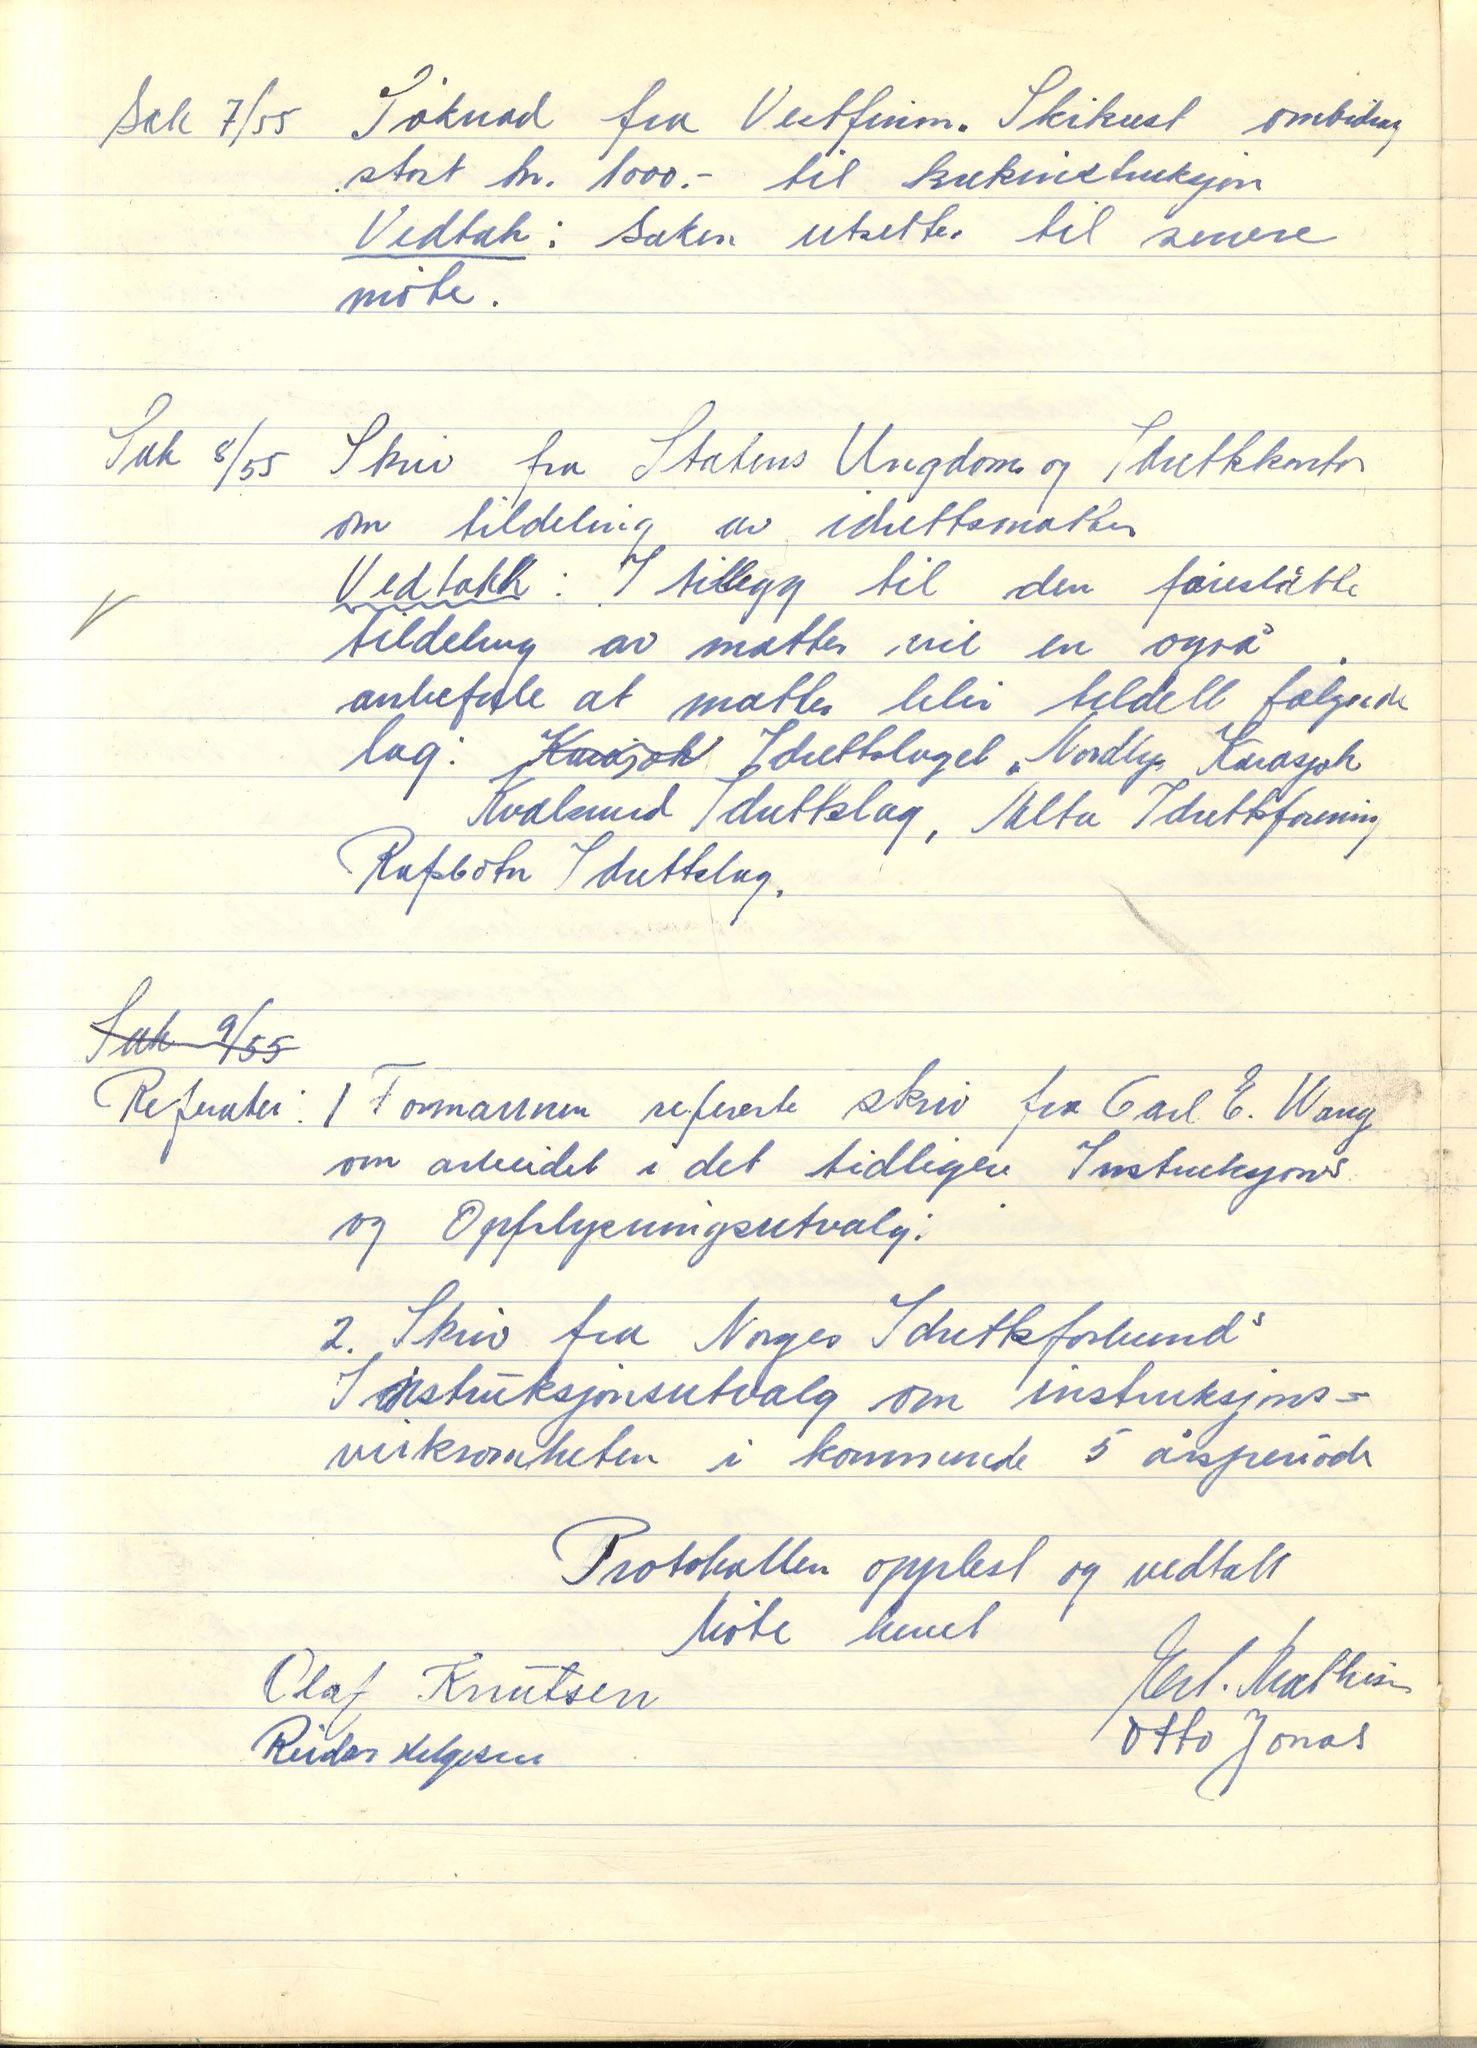 Sak 7/55 Søknad fra Vestfinnm. Skikrest om bidrag
stort kr. 1000.- til krekinstruksjon
Vedtak: Saken utsettes til senere
møte.
Sak 8/55 Skriv fra Statens Ungdoms og Idrettkontor
om tildeling av idrettsmatter
Vedtakk: I tillegg til den foreslåtte
tildeling av matter vil en også
anbefale at matter blir tildelt følgende
lag: Karasjok Idrettslaget "Nordlys Karasjok
Kvalsund Idrettslag, Alta Idrettsforening
Rafsbotn Idrettslag.
Sak 9/55
Referater: 1 Formannen refererte skriv fra Carl E. Wang
om arbeidet i det tidligere Instruksjons
og Opplysningsutvalg.
2. Skriv fra Norges Idrettsforbund's
Instruksjonsutvalg om instruksjons-
virksomheten i kommende 5 årsperiode
Protokollen opplest og vedtatt
Møte hevet
Olaf Knutsen Erl. Mathisen
Reidar Helgesen Otto Jonas